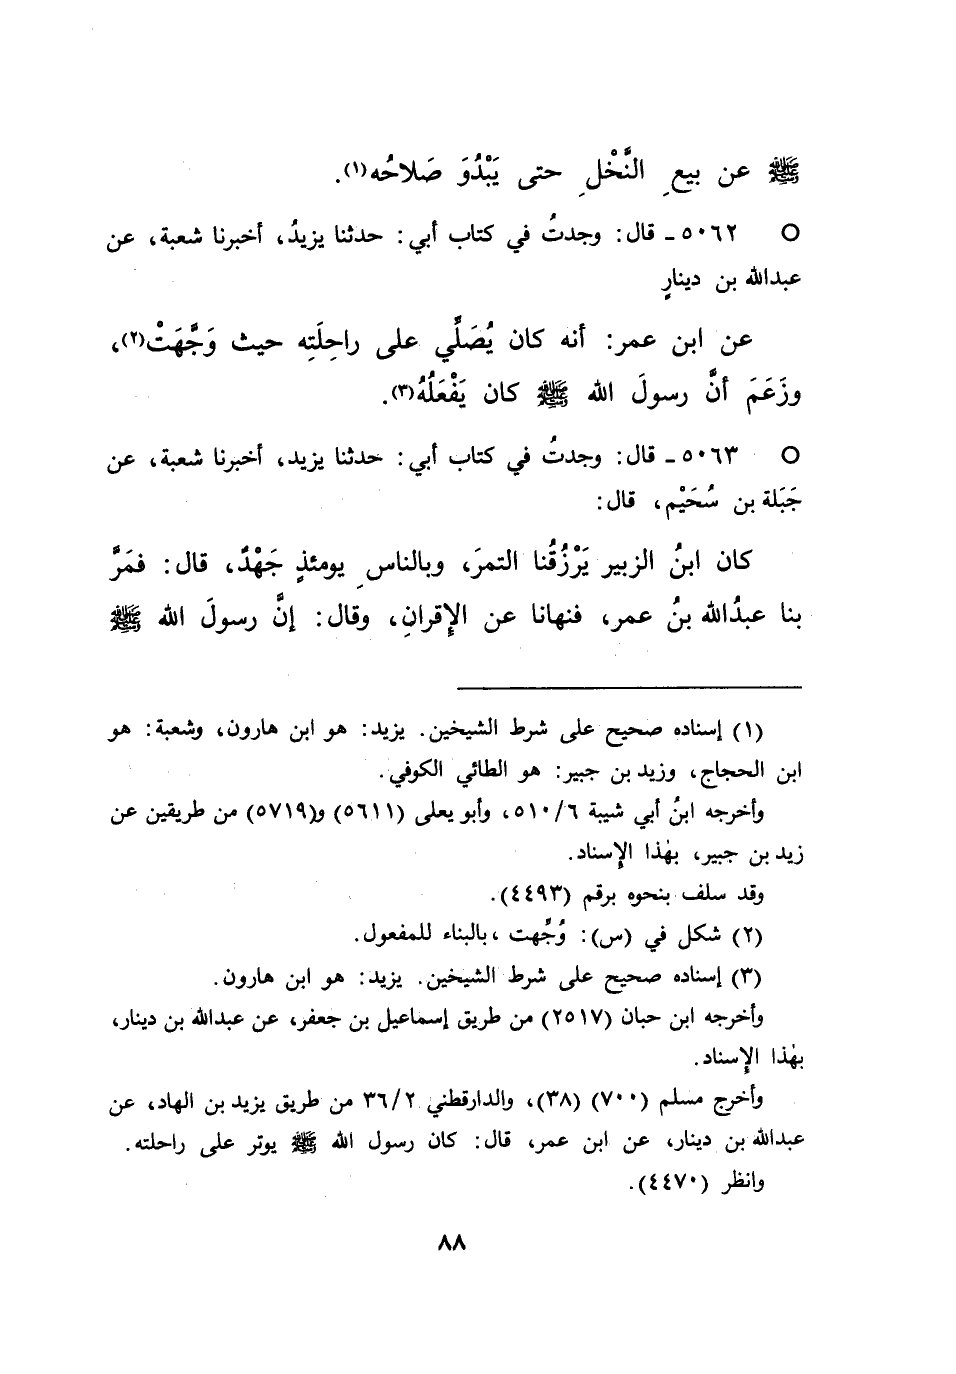 ﷺ عن بيعِ النَّخْلِ حتى يَبْدُوَ صَلاحُه(١).
○ ٥٠٦٢ ـ قال: وجدتُ في كتاب أبي: حدثنا يزيدُ، أخبرنا شعبة، عن
عبدالله بن دينارٍ
عن ابن عمر: أنه كان يُصَلِّي على راحِلَتِه حيث وَجَّهَتْ(٢)،
وزَعَمَ أنَّ رسولَ الله ﷺ كان يَفْعَلُهُ(٣).
○ ٥٠٦٣ ـ قال: وجدتُ في كتاب أبي: حدثنا يزيد، أخبرنا شعبة، عن
جَبَلة بن سُحَيْم، قال:
كان ابنُ الزبير يَرْزُقُنا التمرَ، وبالناسِ يومئذٍ جَهْدٌ، قال: فمَرَّ
بنا عبدُالله بنُ عمر، فنهانا عن الإِقرانِ، وقال: إنَّ رسولَ الله ﷺ
(١) إسناده صحيح على شرط الشيخين. يزيد: هو ابن هارون، وشعبة: هو
ابن الحجاج، وزيد بن جبير: هو الطائي الكوفي.
وأخرجه ابنُ أبي شيبة ٥١٠/٦، وأبو يعلى (٥٦١١) و(٥٧١٩) من طريقين عن
زيد بن جبير، بهٰذا الإِسناد.
وقد سلف بنحوه برقم (٤٤٩٣).
(٢) شكل في (س): وُجِّهت ،بالبناء للمفعول.
(٣) إسناده صحيح على شرط الشيخين. يزيد: هو ابن هارون.
وأخرجه ابن حبان (٢٥١٧) من طريق إسماعيل بن جعفر، عن عبدالله بن دينار،
بهٰذا الإِسناد.
وأخرج مسلم (٧٠٠) (٣٨)، والدارقطني ٣٦/٢ من طريق يزيد بن الهاد، عن
عبدالله بن دينار، عن ابن عمر، قال: كان رسول الله ﷺ يوتر على راحلته.
وانظر (٤٤٧٠).
٨٨